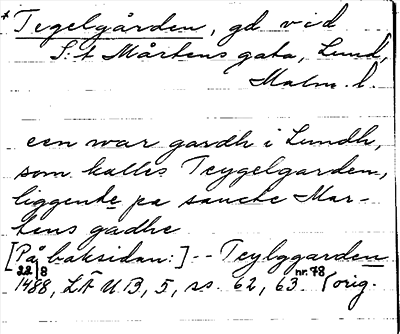 * Tegelgården, gd vid
S:t Mårtens gata, Lund,
Malm. l.
een war gardh i Lundh,
som kalles Teygelgarden,
liggente pa sancte Mar-
tens gadhe
[På baksidan:] -- Teylggarden
22/8 1488, LÄUB, 5, ss. 62, 63 nr. 78 (orig.